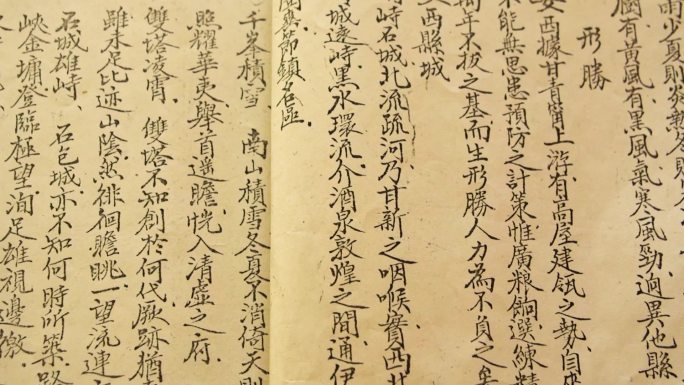 雨少夏則炎熱冬則
樹有黃風有黑風氣寒風勁迥異他縣
形勝
安西據甘青甯上游有高屋建瓴之勢自
不能無思患預防之計策惟廣粮餉選練精
萬年不拔之基而生形勝人力為不負之矣
安西縣城
峙石城北流疏河乃甘新之咽喉實西北
城遠峙黑水環流介酒泉敦煌之間通伊
奧節鎮名區
千峯積雪 南山積雪冬夏不消倚天則
照耀華夷舉首遥瞻恍入清虛之府
雙塔凌霄 雙塔不知創於何代厥跡猶
雖未足比迹山陰然徘徊瞻眺一望流連
石城雄峙 石包城亦不知何時所築路
峽金墉登臨極望洵足雄視邊徼